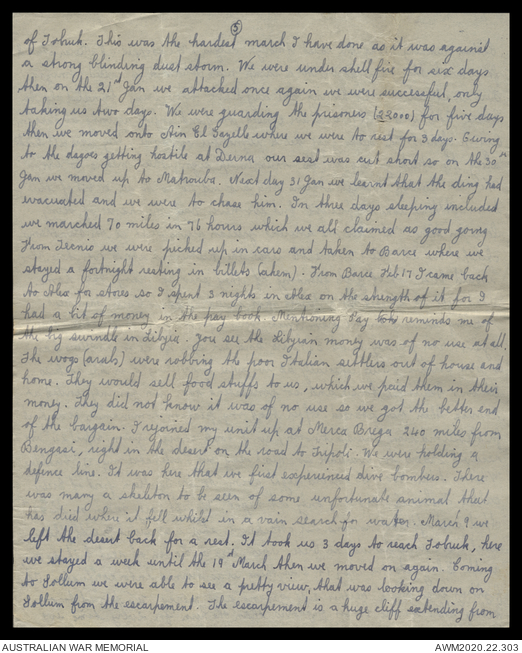 5
of Tobruk. This was the hardest march I have done as it was against
a strong blinding dust storm. We were under shell fire for six days
then on the 21st Jan we attacked once again we were successful, only
taking us two days. We were guarding the prisoners (22000) for five days
then we moved onto Ain El Gazelle where we were to rest for 3 days. Owing
to the dagoes getting hostile at Derna our rest was cut short so on the 30th
Jan we moved up to Matrouba. Next day 31 Jan we learnt that the ding had
evacuated and we were to chase him. In three days sleeping included
we marched 70 miles in 76 hours which we all claimed as good going
From Tecnis we were picked up in cars and taken to Barce where we
stayed a fortnight resting in billets (ahem). From Barce Feb 17 I came back
to Alex for stores so I spent 3 nights in Alex on the strength of it for I
had a bit of money in the pay book. Mentioning Pay reminds me of
the big swindle in Libyia. You see the Libyian money was of no use at all
The wogs (arab) were robbing the poor Italian settlers out of house and
home. They would sell food stuffs to us, which we paid them in their
money. They did not know it was of no use so we got the better end
of the bargain. I rejoined my unit up at Merca Brega 240 miles from
Bengasi, right in the desert on the road to Tripoli. We were holding a
defence line. It was here that we first experienced dive bombers. There
was many a skeleton to be seen of some unfortunate animal that
has died where it fell whilst in a vain search for water. March 9 we
left the desert back for a rest. It took us 3 days to reach Tobruk, here
we stayed a week until the 19st March then we moved on again. Coming
to Sollum we were able to see a pretty view, that was looking down on
Sollum from the escarpement. The escarpement is a huge cliff extending from
AUSTRALIAN WAR MEMORIAL
AWM2020.22.303